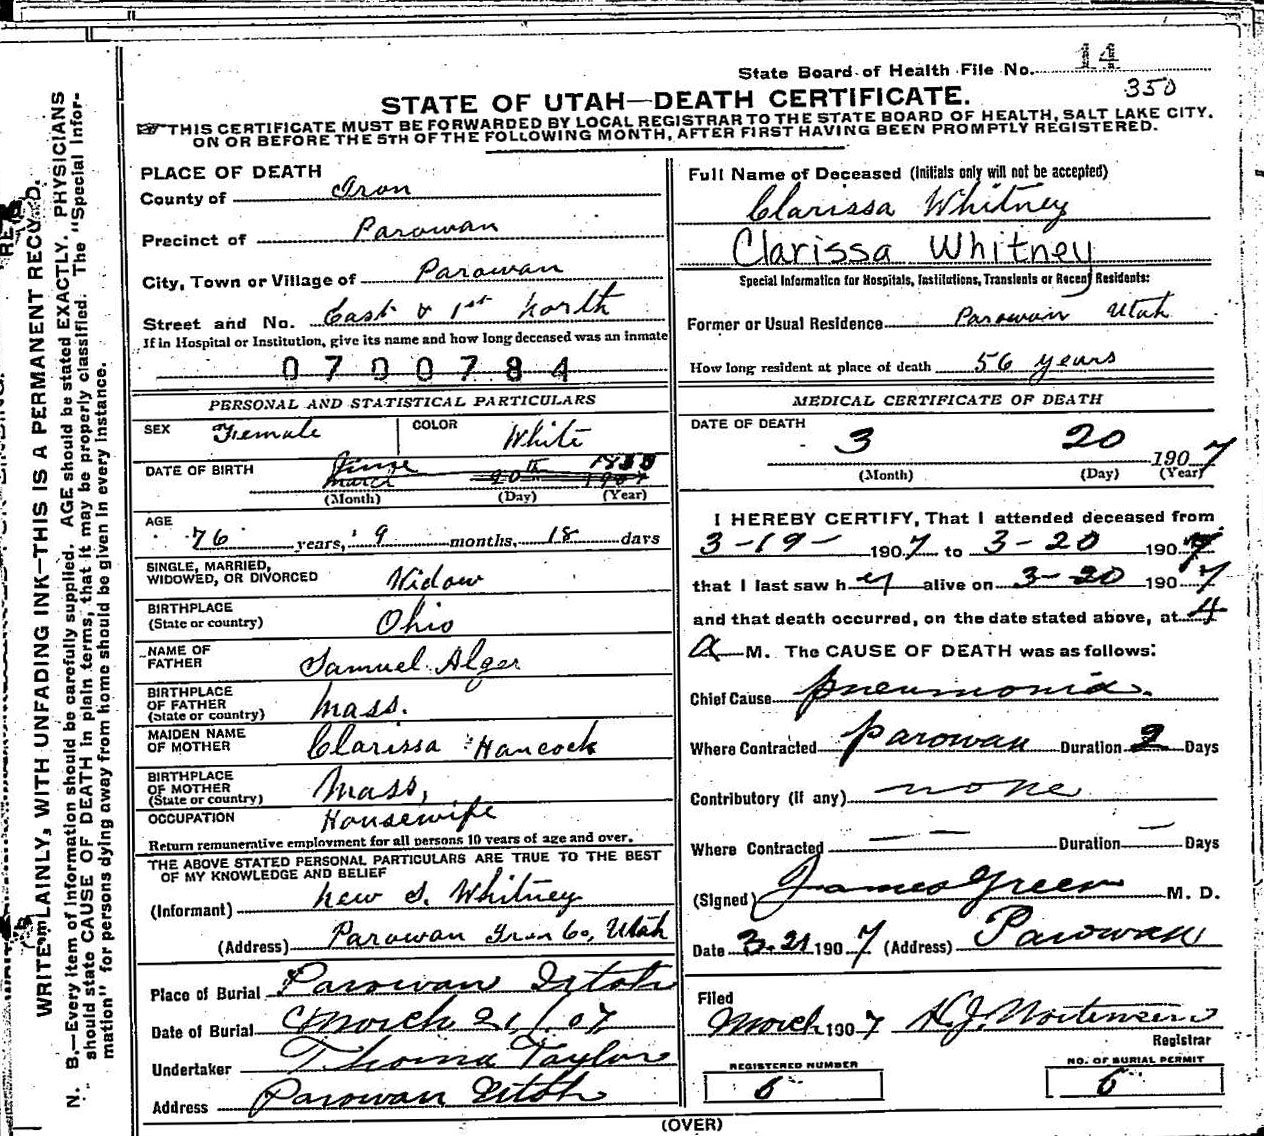 State Board of Health File No. 14
350
STATE OF UTAH—DEATH CERTIFICATE.
THIS CERTIFICATE MUST BE FORWARDED BY LOCAL REGISTRAR TO THE STATE BOARD OF HEALTH, SALT LAKE CITY,
ON OR BEFORE THE 5TH OF THE FOLLOWING MONTH, AFTER FIRST HAVING BEEN PROMPTLY REGISTERED.
PLACE OF DEATH
County of Iron
Precinct of Parowan
City, Town or Village of Parowan
Street and No. East & 1st north
If in Hospital or Institution, give its name and how long deceased was an inmate
0700784
PERSONAL AND STATISTICAL PARTICULARS
SEX Female COLOR White
DATE OF BIRTH June
March 20th
(Month) (Day) (Year)
AGE
76 years, 9 months, 18 days
SINGLE, MARRIED,
WIDOWED, OR DIVORCED Widow
BIRTHPLACE
(State or country) Ohio
NAME OF
FATHER Samuel Alger
BIRTHPLACE
OF FATHER
(State or country) Mass.
MAIDEN NAME
OF MOTHER Clarissa Hancock
BIRTHPLACE
OF MOTHER
(State or country) Mass,
OCCUPATION Housewife
Return remunerative employment for all persons 10 years of age and over.
THE ABOVE STATED PERSONAL PARTICULARS ARE TRUE TO THE BEST
OF MY KNOWLEDGE AND BELIEF
(Informant) New S. Whitney
(Address) Parowan Iron Co, Utah
Place of Burial Parowan Utah
Date of Burial March 21/07
Undertaker Thoma Taylor
Address Parowan Utah
Full Name of Deceased (Initials only will not be accepted)
Clarissa Whitney
Clarissa Whitney
Special Information for Hospitals, Institutions, Transients or Recent Residents:
Former or Usual Residence Parowan Utah
How long resident at place of death 56 years
MEDICAL CERTIFICATE OF DEATH
DATE OF DEATH
3 20 1907
(Month) (Day) (Year)
I HEREBY CERTIFY, That I attended deceased from
3-19- 1907 to 3-20 1907
that I last saw her alive on 3-20 1907
and that death occurred, on the date stated above, at 4
a M. The CAUSE OF DEATH was as follows:
Chief Cause pneumonia.
Where Contracted Parowan Duration 2 Days
Contributory (if any) none
Where Contracted — — Duration — Days
(Signed) James Green M. D.
Date 3-21 1907 (Address) Parowan
Filed
March 1907 H.J. Mortensen
Registrar
REGISTERED NUMBER
6
NO. OF BURIAL PERMIT
6
(OVER)
WRITE PLAINLY, WITH UNFADING INK—THIS IS A PERMANENT RECORD.
N. B.—Every item of information should be carefully supplied. AGE should be stated EXACTLY. PHYSICIANS
should state CAUSE OF DEATH in plain terms, that it may be properly classified. The "Special Infor-
mation" for persons dying away from home should be given in every instance.